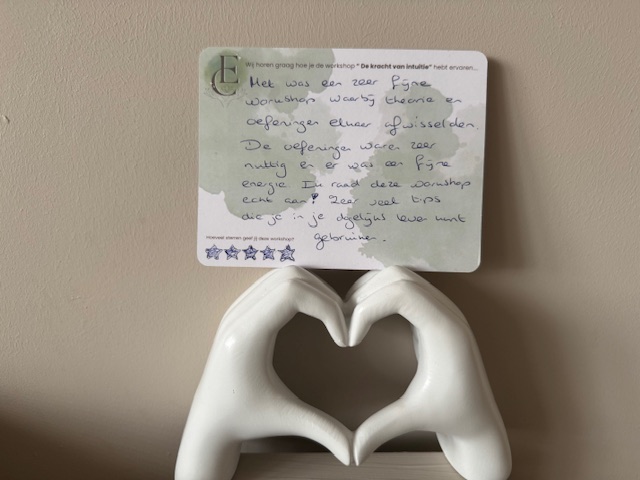 EC
Wij horen graag hoe je de workshop " De kracht van intuïtie" hebt ervaren...
Het was een zeer fijne
workshop waarbij theorie en
oefeningen elkaar afwisselden.
De oefeningen waren zeer
nuttig en er was een fijne
energie. Ik raad deze workshop
echt aan! Zeer veel tips
die je in je dagelijks leven kunt
gebruiken.
Hoeveel sterren geef jij deze workshop?